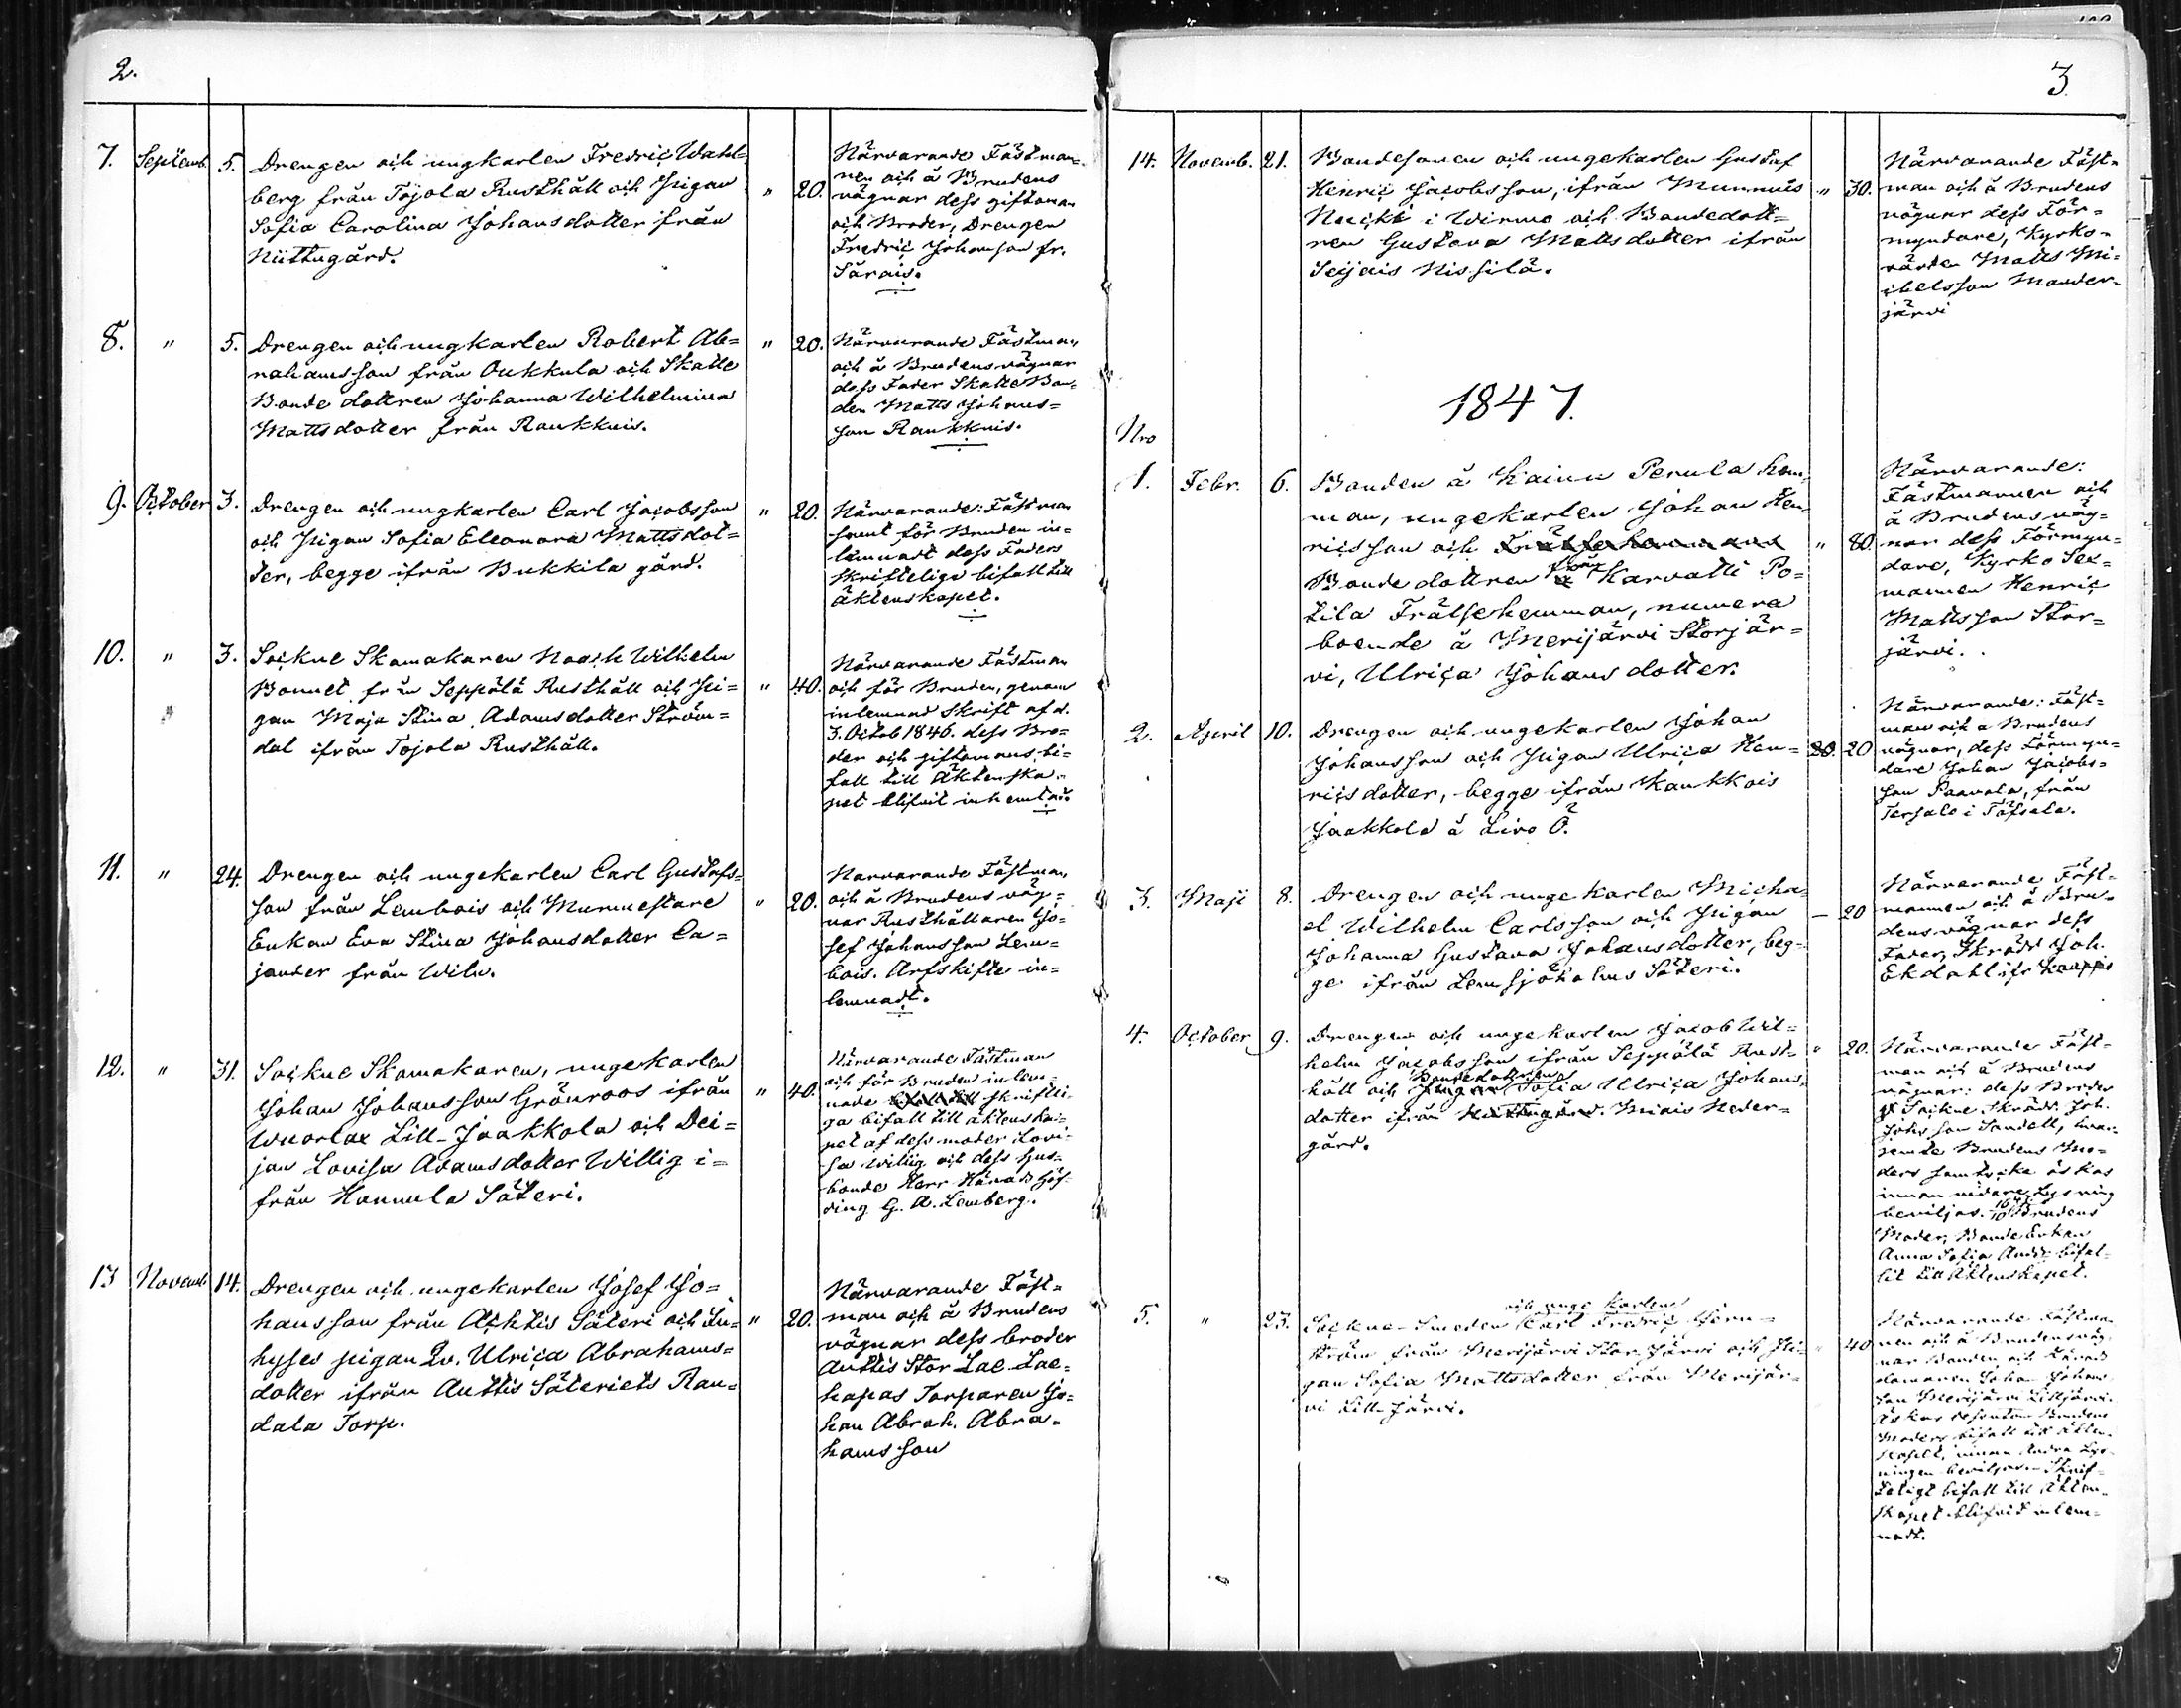 2.
7. Septemb. 5. Drengen och ungkarlen Fredric Wahl=
berg från Tojola Rusthåll och Pigan " 20.
Sofia Carolina Johansdotter från
Niittugård.
Närvarande Fästman=
nen och å Brudens
vägnar dess giftoman
och Broder, Drengen
Fredric Johansson fr.
Särais.
8. " 5. Drengen och ungkarlen Robert Ab= " 20.
rahamsson från Oukkula och Skatte
Bonde dottren Johanna Wilhelmina
Mattsdotter från Raukkuis.
Närvarande Fästman
och å Brudens vägnar
dess Fader Skatte Bon=
den Matts Johans=
son Raukkuis.
9. October 3. Drengen och ungkarlen Carl Jacobsson " 20.
och Pigan Sofia Eleonora Mattsdot=
ter, begge ifrån Bukkila gård.
Närvarande: Fästman
samt för Bruden in=
lemnadt dess Faders
skrifteliga bifall till
äktenskapet.
10. " 3. Sockne Skomakaren Noach Wilhelm
Bonnet från Seppälä Rusthåll och Pi= " 40.
gan Maja Stina Adamsdotter Ström=
dal ifrån Tojola Rusthåll.
Närvarande Fästman
och för Bruden, genom
inlemnad skrift af d.
3. Octob 1846. dess Bro=
der och giftomans bi=
fall till Äktenska=
pet blifvit inhemtat.
11. " 24. Drengen och ungekarlen Carl Gustafs=
son från Lembois och Murmestare " 20.
Enkan Eva Stina Johansdotter Ca=
jander från Wilu.
Närvarande Fästman
och å Brudens väg=
nar Rusthållaren Jo=
sef Johansson Lem=
bois. Arfskifte in=
lemnadt.
12. " 31. Sockne Skomakaren, ungekarlen
Johan Johansson Grönroos ifrån " 40.
Wuorlax Lill-Jaakkola och Dei=
jan Lovisa Adamsdotter Willig i=
från Hannula Säteri.
Närvarande Fästman
och för Bruden inlem=
nade skriftli=
ga bifall till äktenska=
pet af dess moder Lovi=
sa Willig och dess Hus=
bonde Herr Härads Höf=
ding G. A. Lemberg.
13 Novemb 14. Drengen och ungekarlen Josef Jo=
hansson från Achtis Säteri och In= " 20.
hyses pigan Qv. Ulrica Abrahams=
dotter ifrån Auttis Säteriets Ran=
dala Torp.
Närvarande Fäst=
man och å Brudens
vägnar dess broder
Auttis Stor Lae Lae=
hapas Torparen Jo=
han Abrah. Abra=
hamsson
3
14. Novemb. 21. Bondesonen och ungekarlen Gustaf
Henric Jacobsson, ifrån Munnuis " 30.
Nuicki i Wirmo och Bondedott=
ren Gustava Mattsdotter ifrån
Seijais Nissilä.
Närvarande Fäst=
man och å Brudens
vägnar dess För=
myndare, Kyrko=
värden Matts Mi=
chelsson Mander=
järvi
1847.
Nro
1. Febr. 6. Bonden å Kainu Perula hem=
man, ungekarlen Johan Hen=
ricsson och Frälsehemmans " 80.
Bonde dottren från Karvatti Po=
tila Frälsehemman, numera
boende å Merijärvi Storjär=
vi, Ulrica Johansdotter.
Närvarande:
Fästmannen och
å Brudens väg=
nar dess Förmyn=
dare, Kyrko Sex=
mannen Henric
Mattsson Stor=
järvi.
2. April 10. Drengen och ungekarlen Johan
Johansson och Pigan Ulrica Hen= 20. 20
ricsdotter, begge ifrån Kaukkois
Jaakkola å Livo Ö.
Närvarande: Fäst=
man och å Brudens
vägnar, dess Förmyn=
dare Johan Jacobs=
son Paavola, från
Tersalo i Töfsala.
3. Maji 8. Drengen och ungekarlen Micha=
el Wilhelm Carlsson och Pigan — 20
Johanna Gustava Johansdotter, beg=
ge ifrån Lemsjöholms Säteri.
Närvarande Fäst=
mannen och å Bru=
dens vägnar dess
Fader, Skrädd. Joh.
Ekdahl ifr Kauppis
4. October 9. Drengen och ungekarlen Jacob Wil=
helm Jacobsson ifrån Seppälä Rust= " 20.
håll och Pigan Bondedottren Sofia Ulrica Johans=
dotter ifrån Niittugård. Miais Neder=
gård.
Närvarande Fäst=
man och å Brudens
vägnar: dess Broder
Sockne Skrädd. Joh.
Johs son Sandell, hvar=
jemte Brudens Mo=
ders samtycke äskas
innan vidare Lysning
beviljas. 16/10 47. Brudens
Moder, Bonde Enkan
Anna Sofia Andsr bifal=
lit till Äktenskapet.
5. " 23. Sockne-Smeden och unge karlen Carl Fredric Jern=
ström från Merijärvi Stor Järvi och Pi= " 40
gan Sofia Mattsdotter från Merijär=
vi Lill Järvi.
Närvarande Fästman=
nen och å Brudens väg=
nar Bonden och Härads
domaren Johan Johans=
son Merijärvi Lilljärvi.
Äskas dessutom Brudens
Moders bifall till Äkten=
skapet, innan Andra Lys=
ningen beviljas.— Skrif=
teligt bifall till Äkten=
skapet blifvit inlem=
nadt.